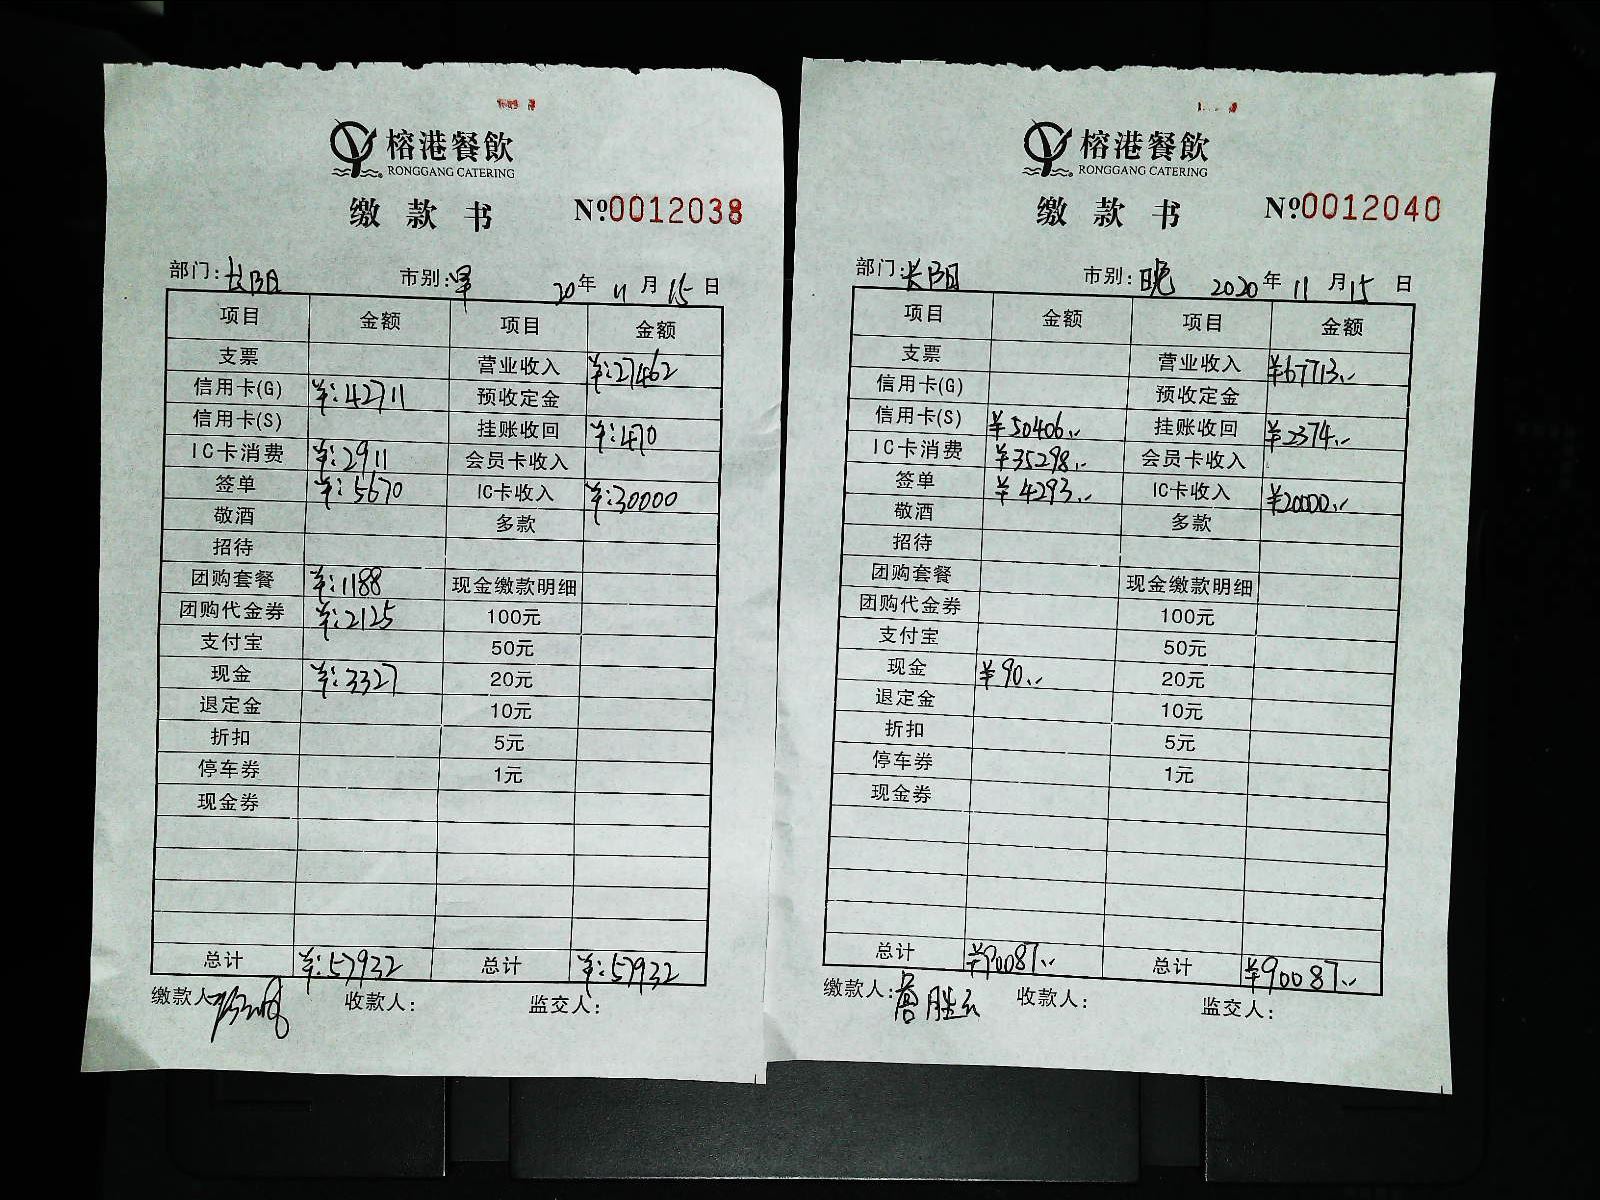 榕港餐飲
RONGGANG CATERING
缴款书 Nº0012038
部门:长阳 市别:早 20年11月15日
项目 金额 项目 金额
支票 营业收入 ¥:27462
信用卡(G) ¥:42711 预收定金
信用卡(S) 挂账收回 ¥:470
IC卡消费 ¥:2911 会员卡收入
签单 ¥:5670 IC卡收入 ¥:30000
敬酒 多款
招待
团购套餐 ¥:1188 现金缴款明细
团购代金券 ¥:2125 100元
支付宝 50元
现金 ¥:3327 20元
退定金 10元
折扣 5元
停车券 1元
现金券
总计 ¥:57932 总计 ¥:57932
缴款人: 收款人: 监交人:
榕港餐飲
RONGGANG CATERING
缴款书 Nº0012040
部门:长阳 市别:晚 2020年11月15日
项目 金额 项目 金额
支票 营业收入 ¥67713.-
信用卡(G) 预收定金
信用卡(S) ¥50406.- 挂账收回 ¥2374.-
IC卡消费 ¥35298.- 会员卡收入
签单 ¥4293.- IC卡收入 ¥20000.-
敬酒 多款
招待
团购套餐 现金缴款明细
团购代金券 100元
支付宝 50元
现金 ¥90.- 20元
退定金 10元
折扣 5元
停车券 1元
现金券
总计 ¥90087.- 总计 ¥90087.-
缴款人: 收款人: 监交人: